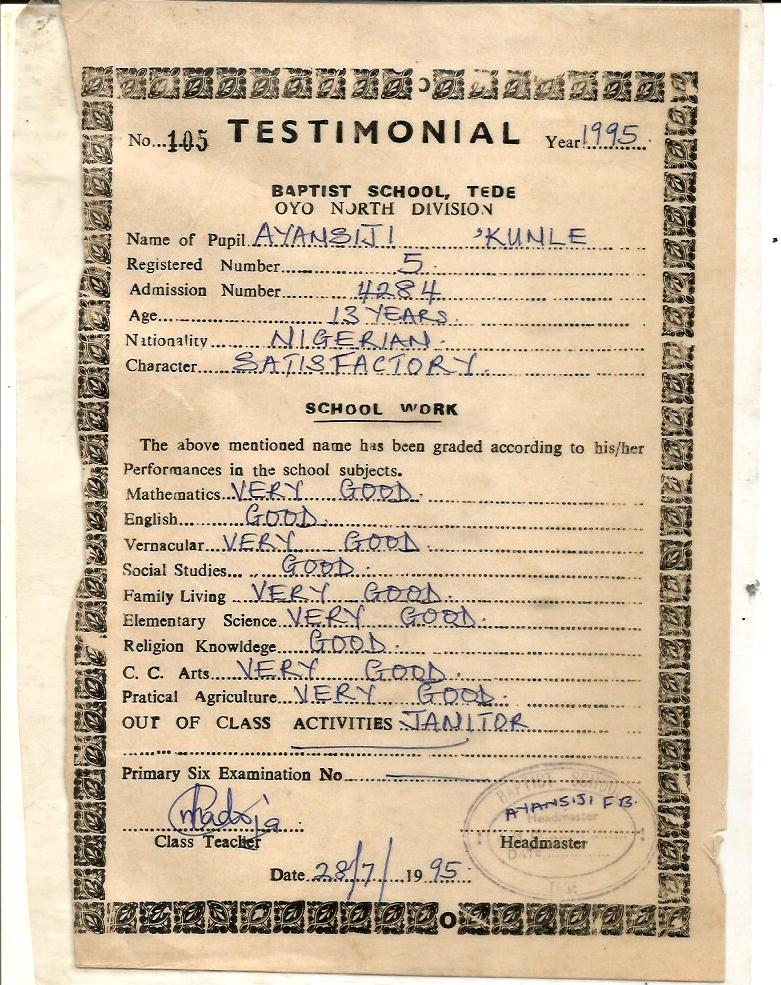 No...105 TESTIMONIAL Year 1995
BAPTIST SCHOOL, TEDE
OYO NORTH DIVISION
Name of Pupil AYANSIJI 'KUNLE
Registered Number 5
Admission Number 4284
Age 13 YEARS
Nationality NIGERIAN
Character SATISFACTORY
SCHOOL WORK
The above mentioned name has been graded according to his/her
Performances in the school subjects.
Mathematics VERY GOOD
English GOOD
Vernacular VERY GOOD
Social Studies GOOD
Family Living VERY GOOD
Elementary Science VERY GOOD
Religion Knowldege GOOD
C. C. Arts VERY GOOD
Pratical Agriculture VERY GOOD
OUT OF CLASS ACTIVITIES JANITOR
Primary Six Examination No
BAPTIST SCHOOL
AYANSIJI F.B.
Headmaster
DATE
Class Teacher Headmaster
Date 28/7/1995